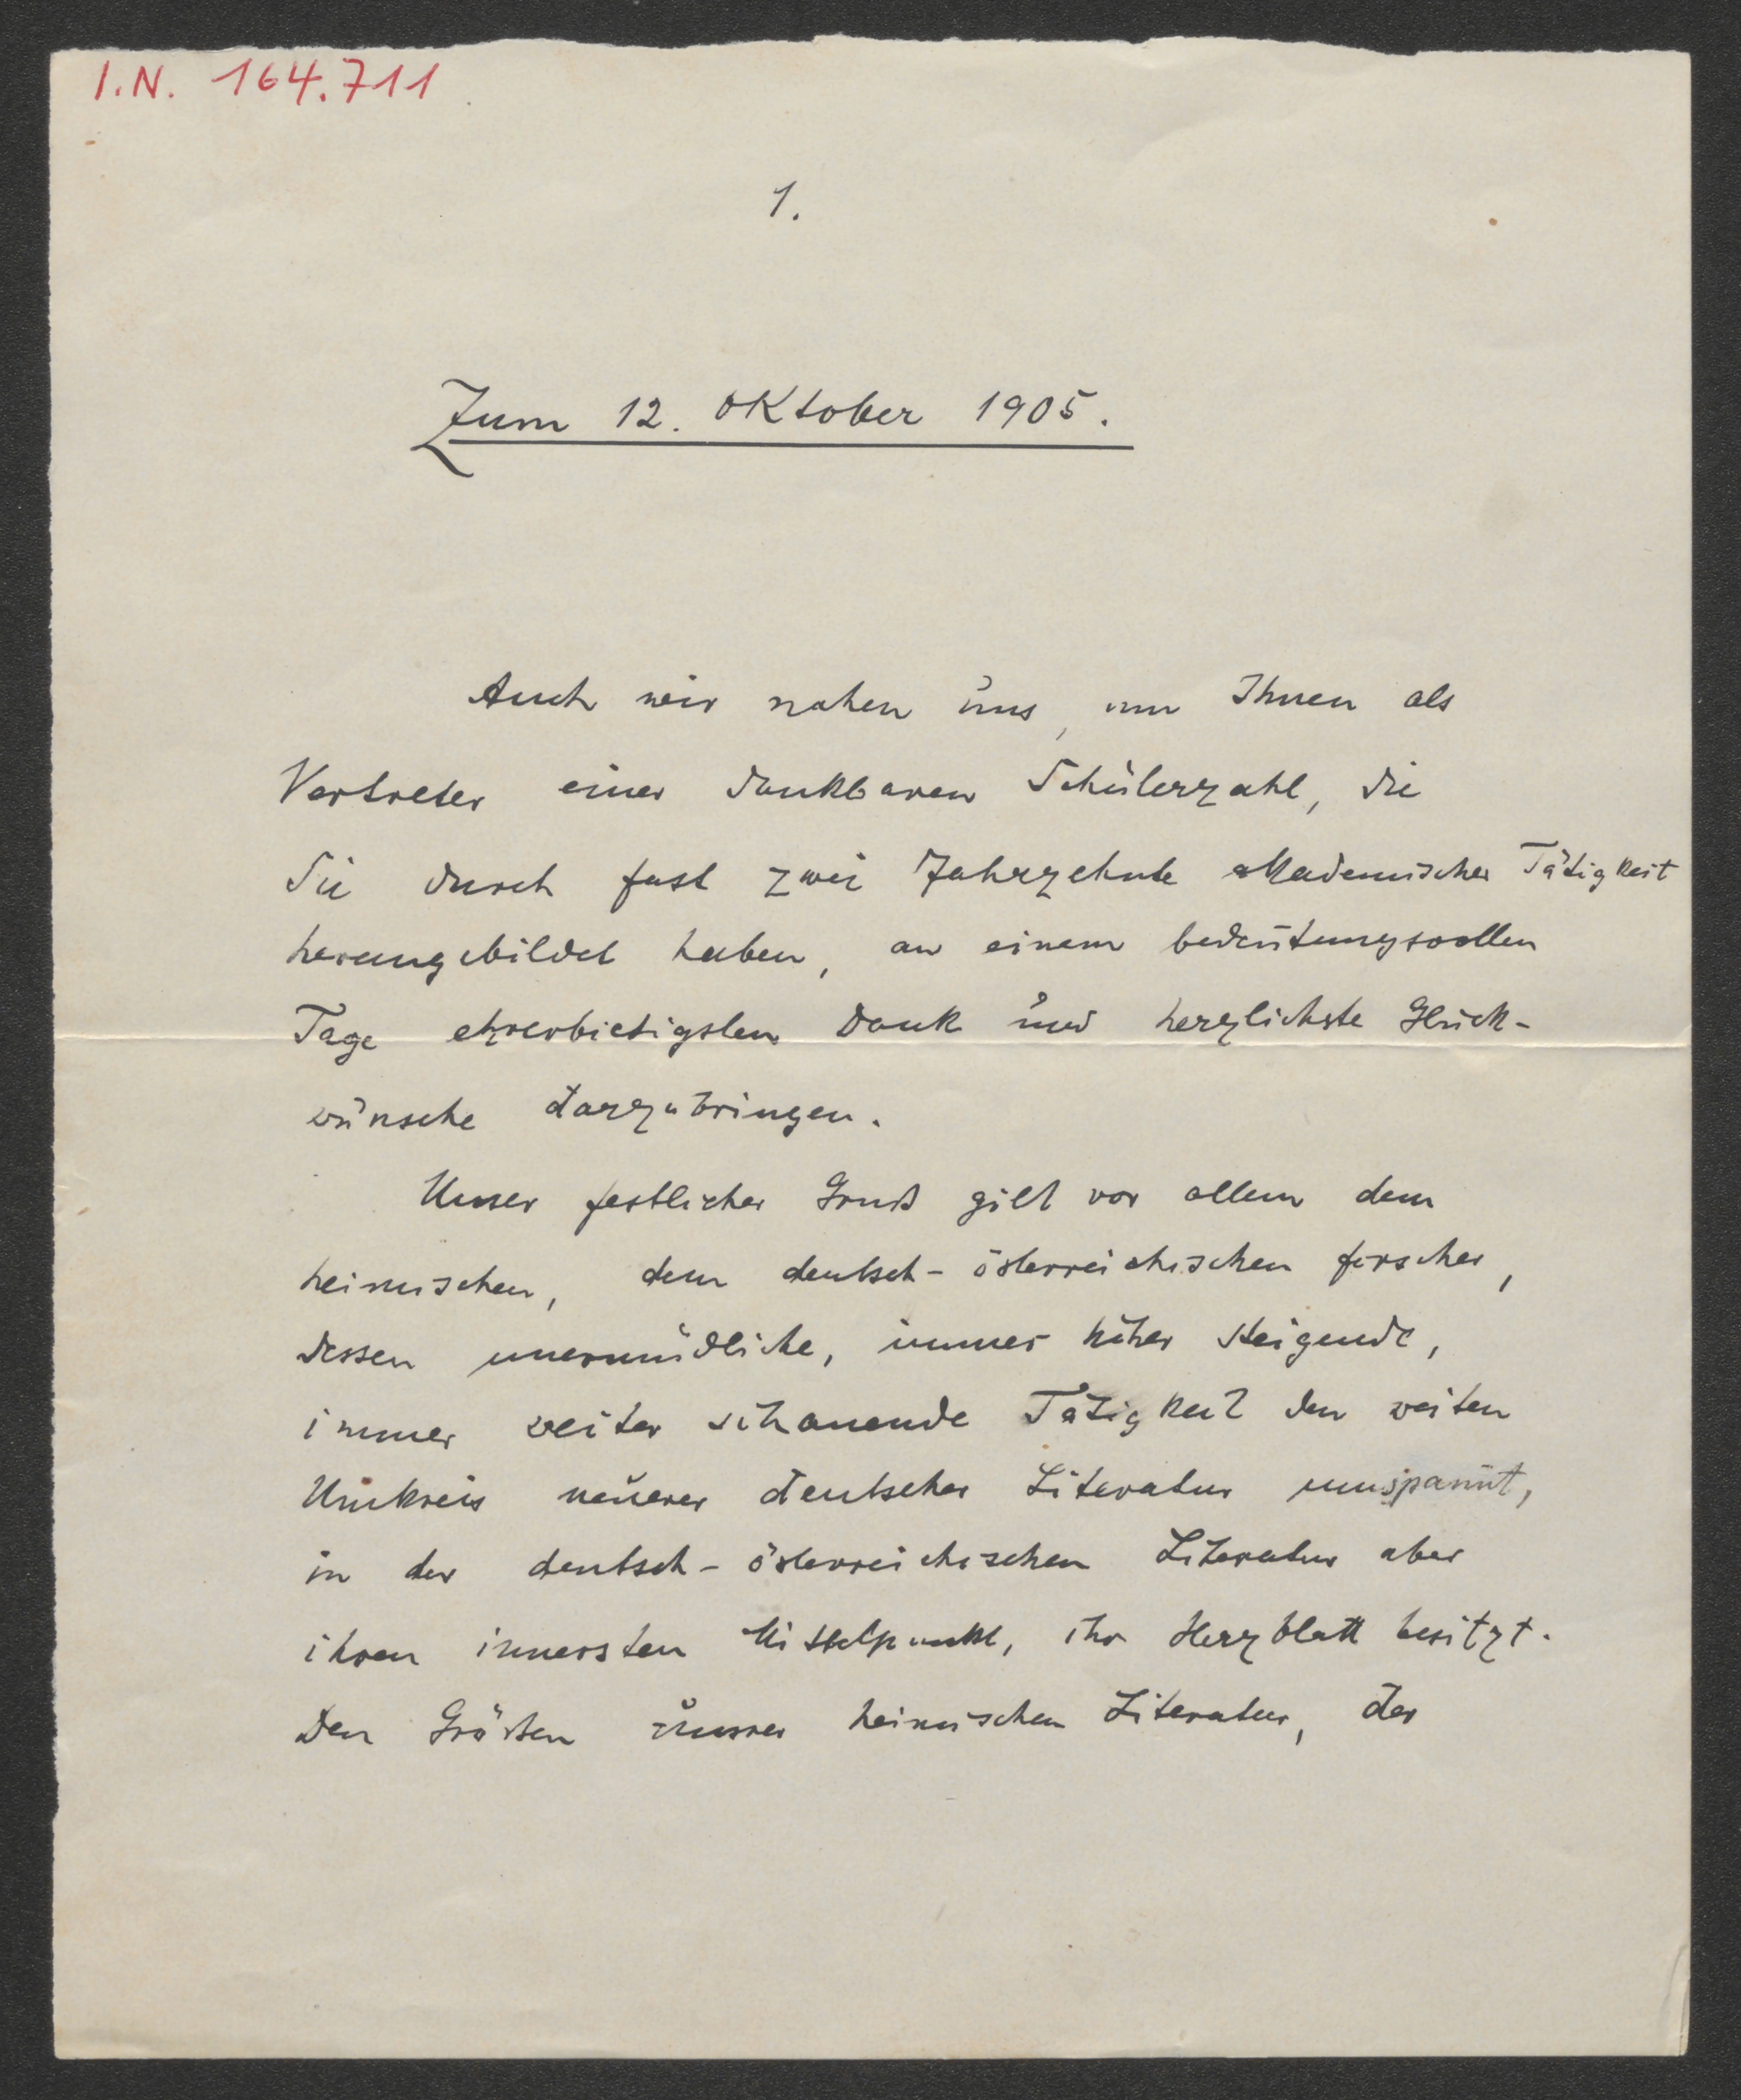 I.N. 164.711
1.
Zum 12. Oktober 1905.
Auch wir nahen uns, um Ihnen als
Vertreter einer dankbaren Schülerzahl, die
Sie durch fast zwei Jahrzehnte akademischer Tätigkeit
herangebildet haben, an einem bedeutungsvollen
Tage ehrerbietigsten Dank und herzlichste Glück-
wünsche darzubringen.
Unser festlicher Gruß gilt vor allem dem
heimischen, dem deutsch-österreichischen Forscher,
dessen unermüdliche, immer höher steigende,
immer weiter schauende Tätigkeit den weiten
Umkreis neuerer deutscher Literatur umspannt,
in der deutsch-österreichischen Literatur aber
ihren innersten Mittelpunkt, ihr Herzblatt besitzt.
Den Größten unsrer heimischen Literatur, der